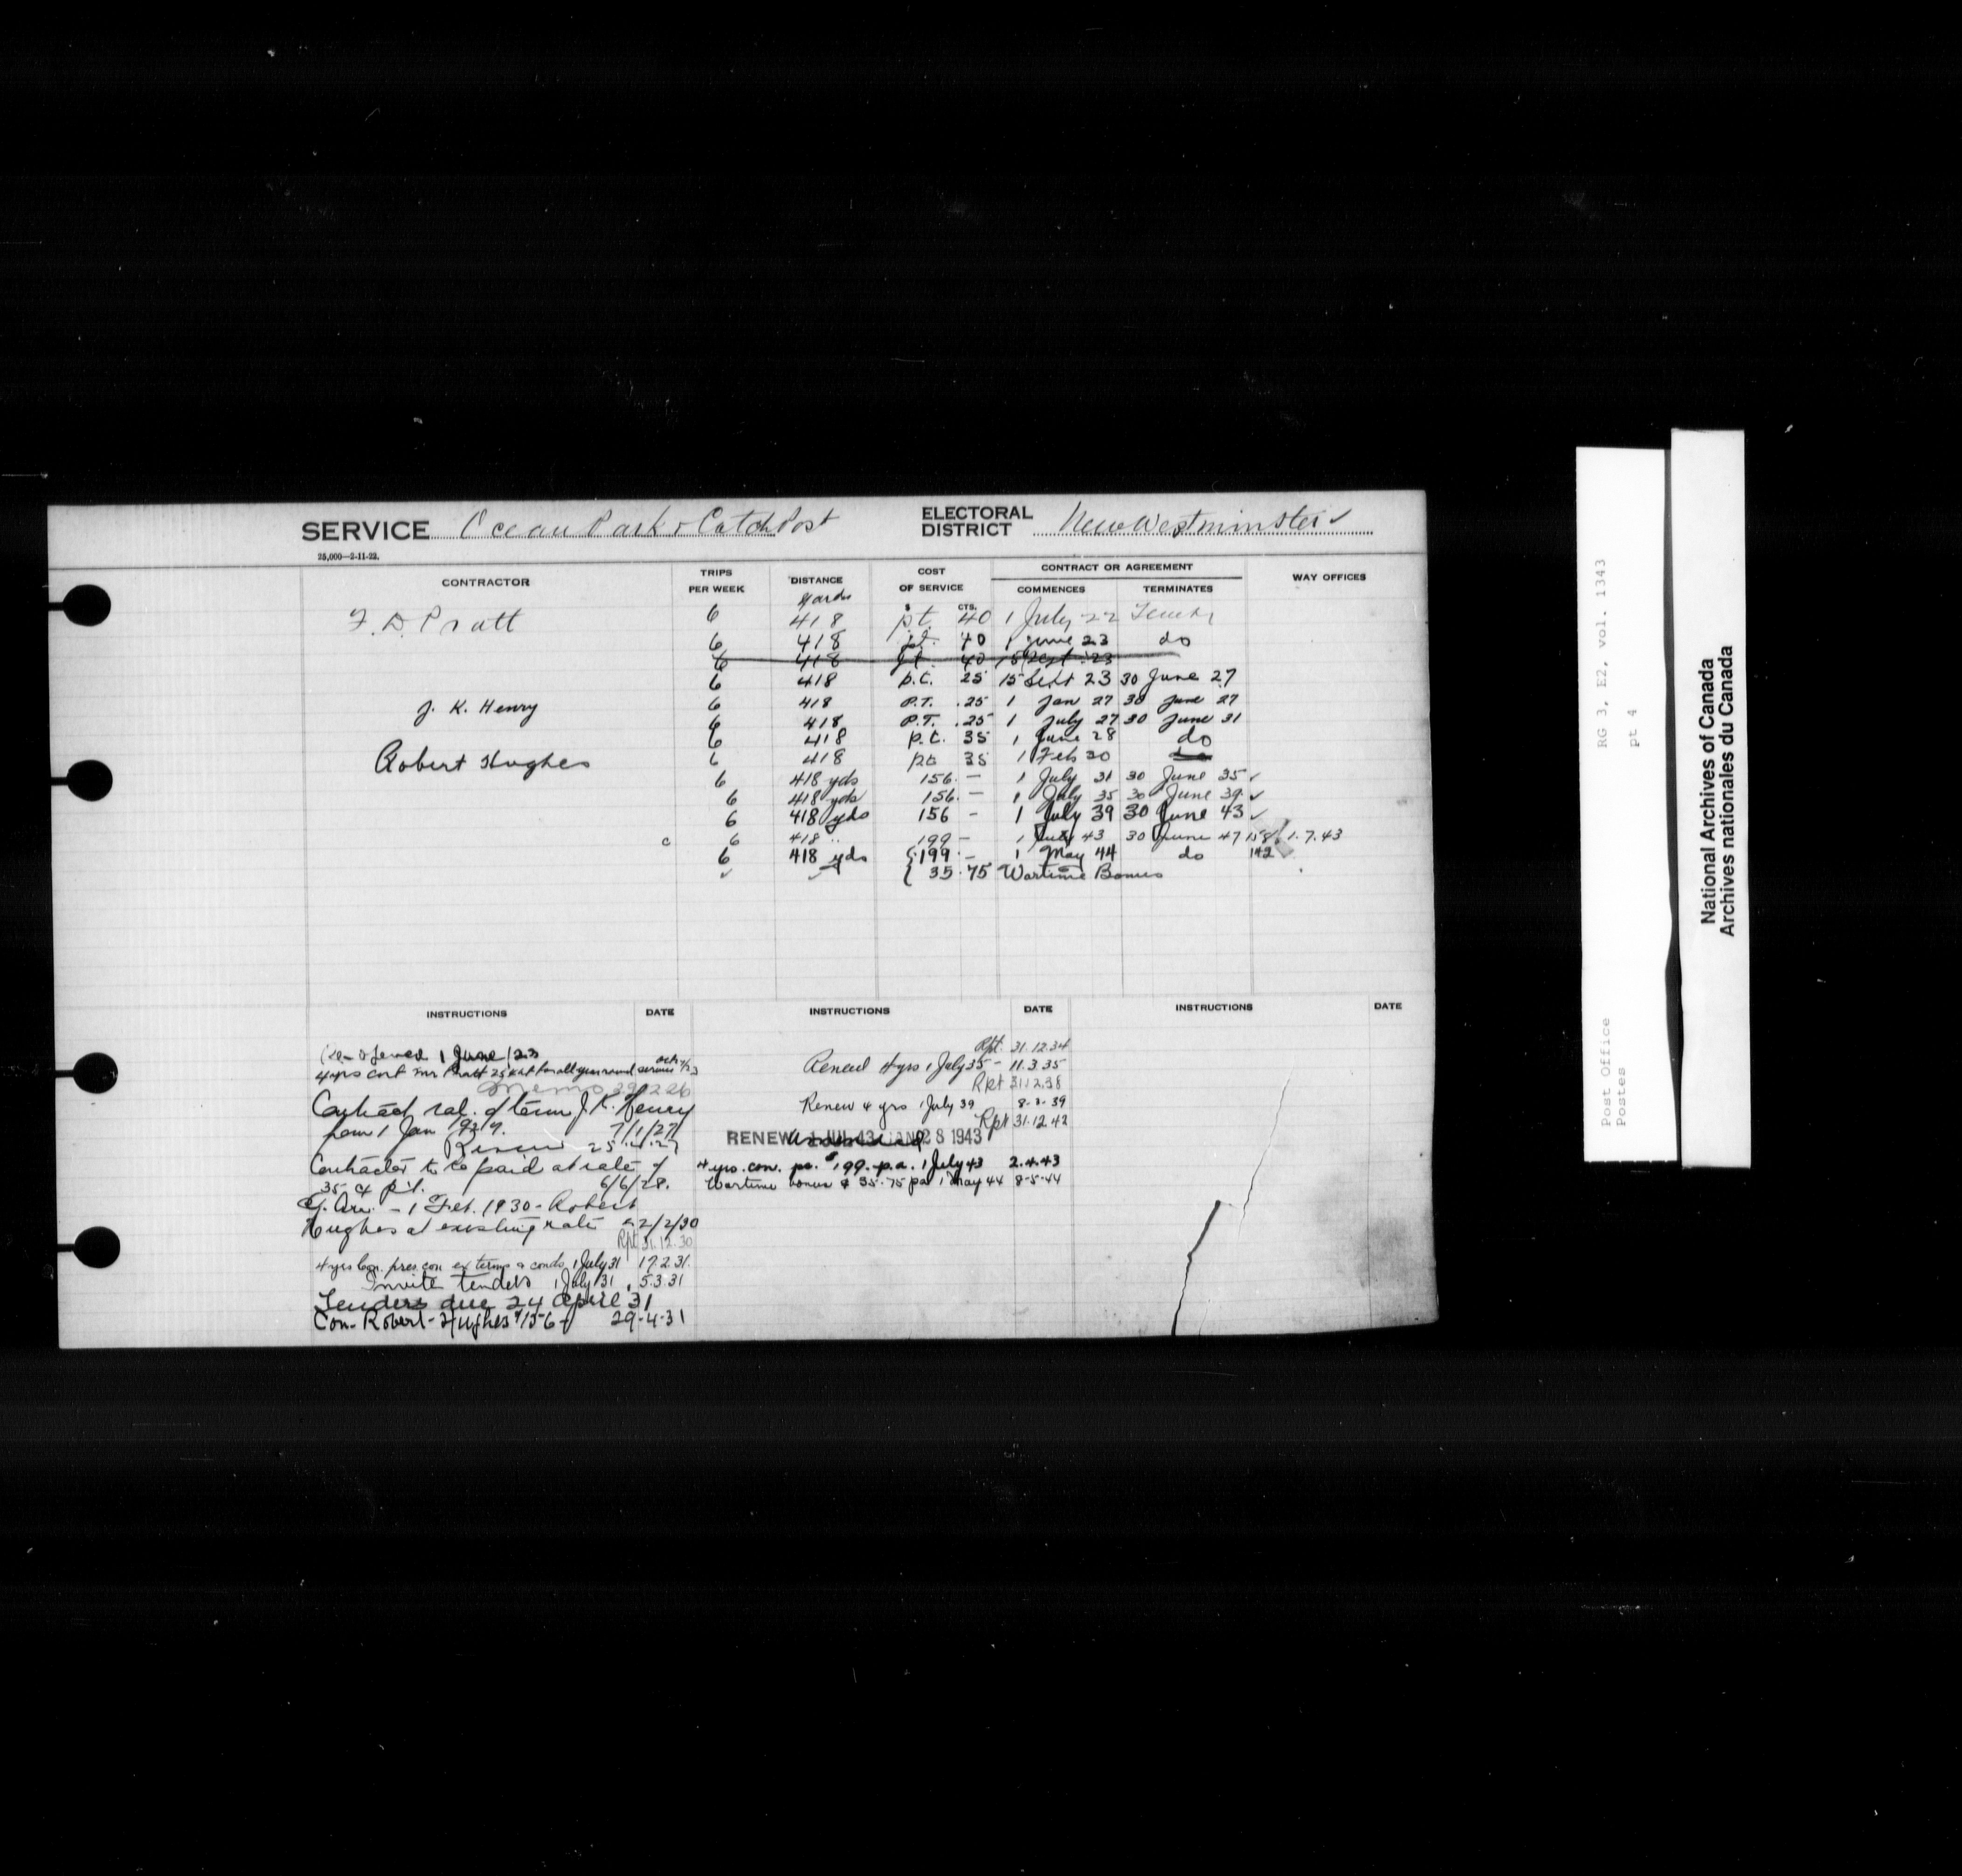 SERVICE Ocean Park & Catch Post ELECTORAL DISTRICT New Westminster ✓
25,000—2-11-22.
CONTRACTOR TRIPS PER WEEK DISTANCE COST OF SERVICE CONTRACT OR AGREEMENT COMMENCES TERMINATES WAY OFFICES
Yards $ CTS.
F. D. Pratt 6 418 p.t. 40 1 July 22
6 418 p.t. 40 1 June 23 do
6 418 p.t. 40 15 Sept. 23
6 418 p.t. 25 15 Sept 23 30 June 27
J. K. Henry 6 418 P.T. .25 1 Jan 27 30 June 27
6 418 P.T. .25 1 July 27 30 June 31
6 418 p.t. 35 1 June 28 do
Robert Hughes 6 418 pt 35 1 Feb 30 do
6 418 yds 156. — 1 July 31 30 June 35 ✓
6 418 yds 156. — 1 July 35 30 June 39 ✓
6 418 yds 156 - 1 July 39 30 June 43 ✓
c 6 418 " 199 — 1 July 43 30 June 47 158/ 1.7.43
6 418 yds {199. — 1 May 44 do 142
✓ ✓ { 35.75 Wartime Bonus
INSTRUCTIONS DATE INSTRUCTIONS DATE INSTRUCTIONS DATE
1 June /23
4 yrs cont Mr Pratt 25¢ p.t for all year round service
Memo 29 12 26
Contract J. K. Henry
from 1 Jan 1927. 7/1/27
Renew 25
Contractor to be paid at rate of
35 ¢ p.t. 6/6/28.
1 Feb. 1930 - Robert
Hughes at existing rate 2/2/30
Rpt 31.12.30
4 yrs con. pres. con ex terms & conds 1 July 31 17.2.31.
Invite tenders 1 July 31 5.3.31
Tenders due 24 April 31
Con- Robert Hughes $156 29-4-31
Rpt. 31.12.34
Renew 4 yrs 1 July 35 - 11.3.35
Rpt 31.12.38
Renew 4 yrs 1 July 39 8-2-39
Rpt 31.12.42
RENEW 1 JUL 43 JAN 28 1943
4 yrs. con. pc. $199. p.a. 1 July 43 2.4.43
Wartime bonus $ 35.75 pa 1 May 44 8-5-44
Post Office RG 3, E2, vol. 1343
Postes pt 4
National Archives of Canada
Archives nationales du Canada